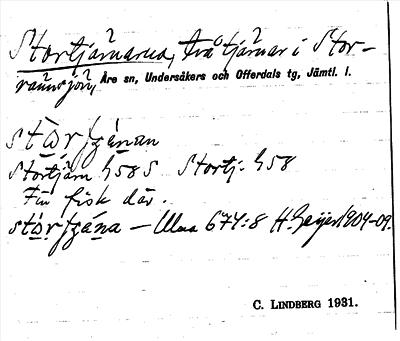 Stortjärnarna, två tjärnar i Stor-
rännsjön, Åre sn, Undersåkers och Offerdals tg, Jämtl. l.
Stortjärn 458 S Stortj. 458
Fin fisk där.
— Ulma 674:8 H. Geijer 1904-09.
C. LINDBERG 1931.